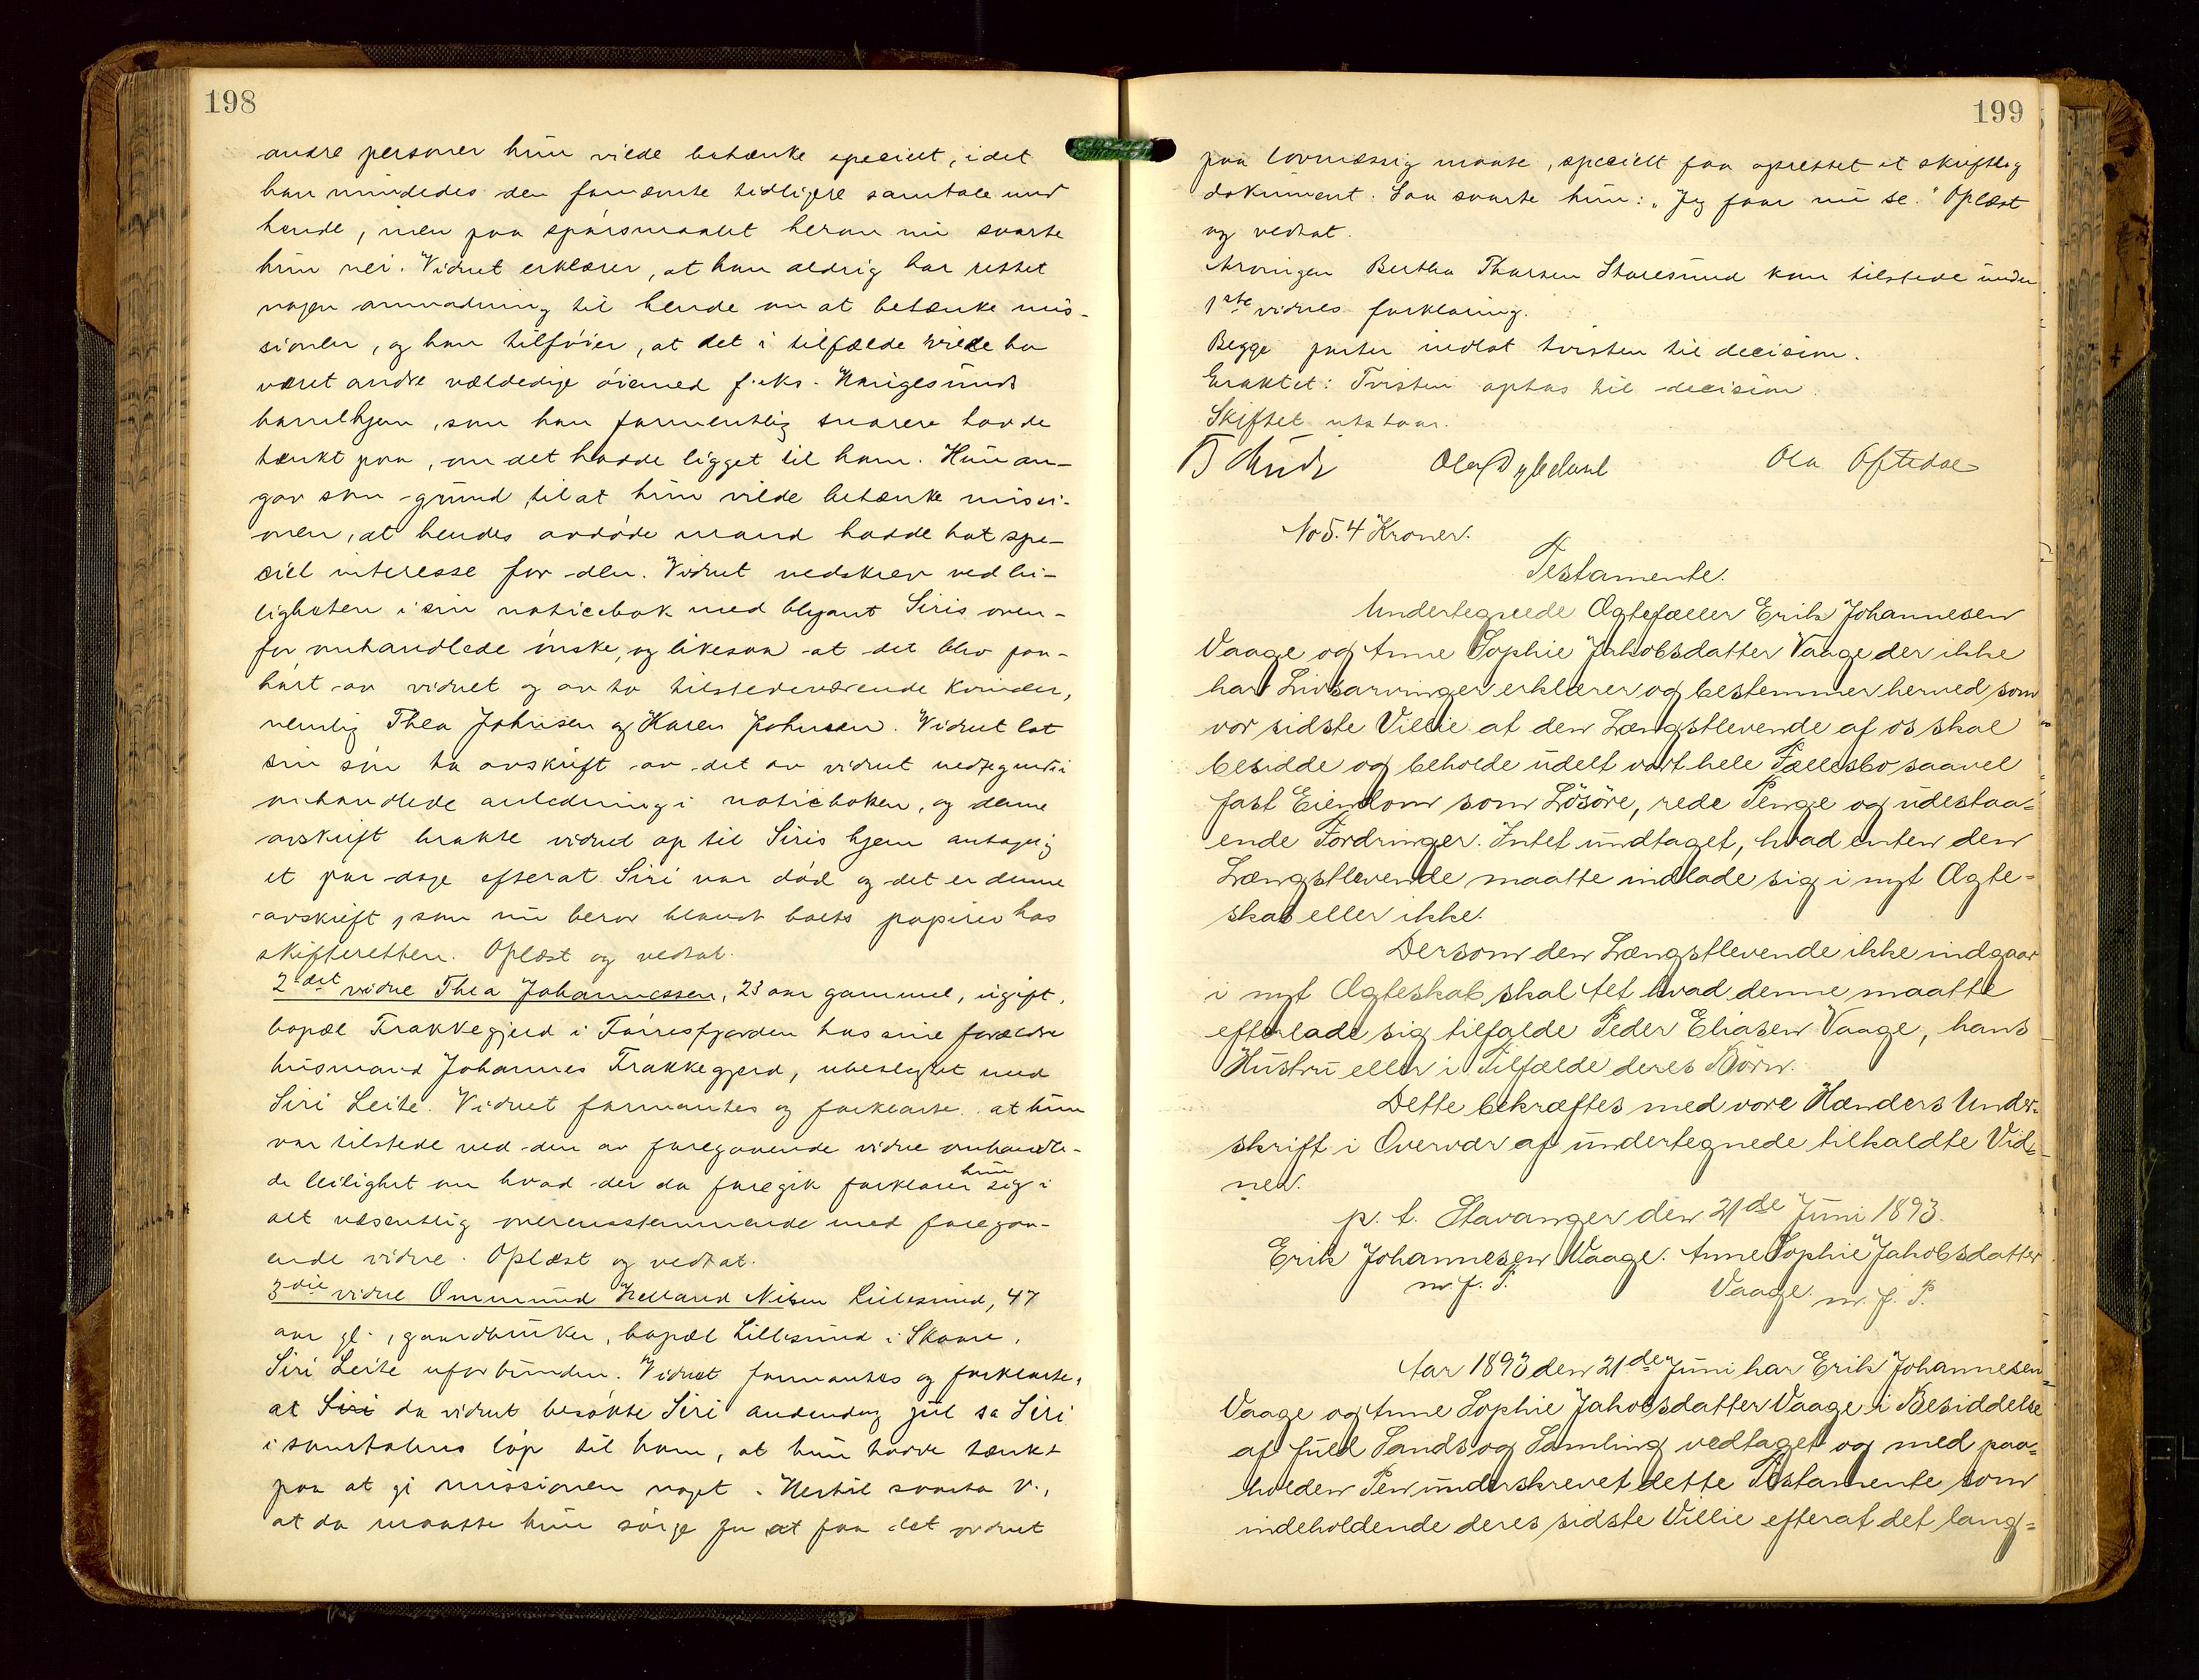 198
andre personer hun vilde betænke specielt, idet
han mindedes den fornævnte tidligere samtale med
hende, men paa spørsmaalet herom nu svarte
hun nei. Vidnet erklærer, at han aldrig har rettet
nogen anmodning til hende om at betænke mis-
sionen, og han tilføier, at det i tilfælde vilde ha
været andre vældedige øiemed f.eks. Haugesunds
barnehjem, som han formentlig snarere havde
tænkt paa, om det hadde ligget til ham. Hun an-
gav som grund til at hun vilde betænke missi-
onen, at hendes avdøde mand hadde hat spe-
ciel interesse for den. Vidnet nedskrev ved lei-
ligheten i sin noticebok med blyant Siris oven-
for omhandlede ønske, og likesaa at det blev paa-
hørt av vidnet og av to tilstedeværende kvinder,
nemlig Thea Johnsen og Karen Johnsen. Vidnet lot
sin søn ta avskrift av det av vidnet nedtegnet i
omhandlede anledning i noticboken, og denne
avskrift brakte vidnet op til Siris hjem antagelig
et par dage efterat Siri var død og det er denne
avskrift, som nu beror blandt boets papirer hos
skifteretten. Oplæst og vedtat.
2det vidne Thea Johannessen, 23 aar gammel, ugift,
bopæl Frakkegjerd i Førresfjorden hos sine forældre
husmand Johannes Frakkegjerd, ubeslegtet med
Siri Leite. Vidnet formantes og forklarte at hun
var tilstede ved den av foregaaende vidne omhandle-
de leilighet om hvad der da foregik forklarer hun sig i
alt væsentlig overensstemmende med foregaa-
ende vidne. Oplæst og vedtat.
3die vidne Ommund Helland Nilsen Lillesund, 47
aar gl., gaardbruker, bopæl Lillesund i Skaare,
Siri Leite uforbunden. Vidnet formantes og forklarte,
at Siri da vidnet besøkte Siri andendag jul sa Siri
i samtalens løp til ham, at hun havde tænkt
paa at gi missionen noget. Hertil svarte v.,
at da maatte hun sørge for at faa det ordnet
199
paa lovmæssig maate, specielt faa oprettet et skriftlig
dokument. Saa svarte hun: "Jeg faar nu se." Oplæst
og vedtat.
Arvingen Bertha Thorsen Storesund kom tilstede under
1ste vidnes forklaring.
Begge parter indlot tvisten til decision.
Eraktet: Tvisten optas til decision.
Skiftet utstaar.
Ola Dybeland Ola Oftedal
No 5. 4 Kroner.
Testamente.
Undertegnede Ægtefæller Erik Johannesen
Vaage og Anne Sophie Jakobsdatter Vaage der ikke
har Livsarvinger erklærer og bestemmer herved som
vor sidste Villie at den Længstlevende af os skal
besidde og beholde udelt vort hele Fællesbo saavel
fast Eiendom som Løsøre, rede Penge og udestaa=
ende Fordringer. Intet undtaget, hvad enten den
Længstlevende maatte indlade sig i nyt Ægte=
skab eller ikke.
Dersom den Længstlevende ikke indgaar
i nyt Ægteskab skal tet hvad denne maatte
efterlade sig tilfalde Peder Eliasen Vaage, hans
Hustru eller i Tilfælde deres Børn.
Dette bekræftes med vore Hænders Under=
skrift i Overvær af undertegnede tilkaldte Vid=
ner.
p. t. Stavanger den 21de Juni 1893.
Erik Johannesen Vaage. Anne Sophie Jakobsdatter
m. f. P. Vaage. m. f. P.
Aar 1893 den 21de Juni har Erik Johannesen
Vaage og Anne Sophie Jakobsdatter Vaage i Besiddelse
af fuld Sands og Samling vedtaget og med paa=
holden Pen underskrevet dette Testamente som
indeholdende deres sidste Villie efterat det lang=